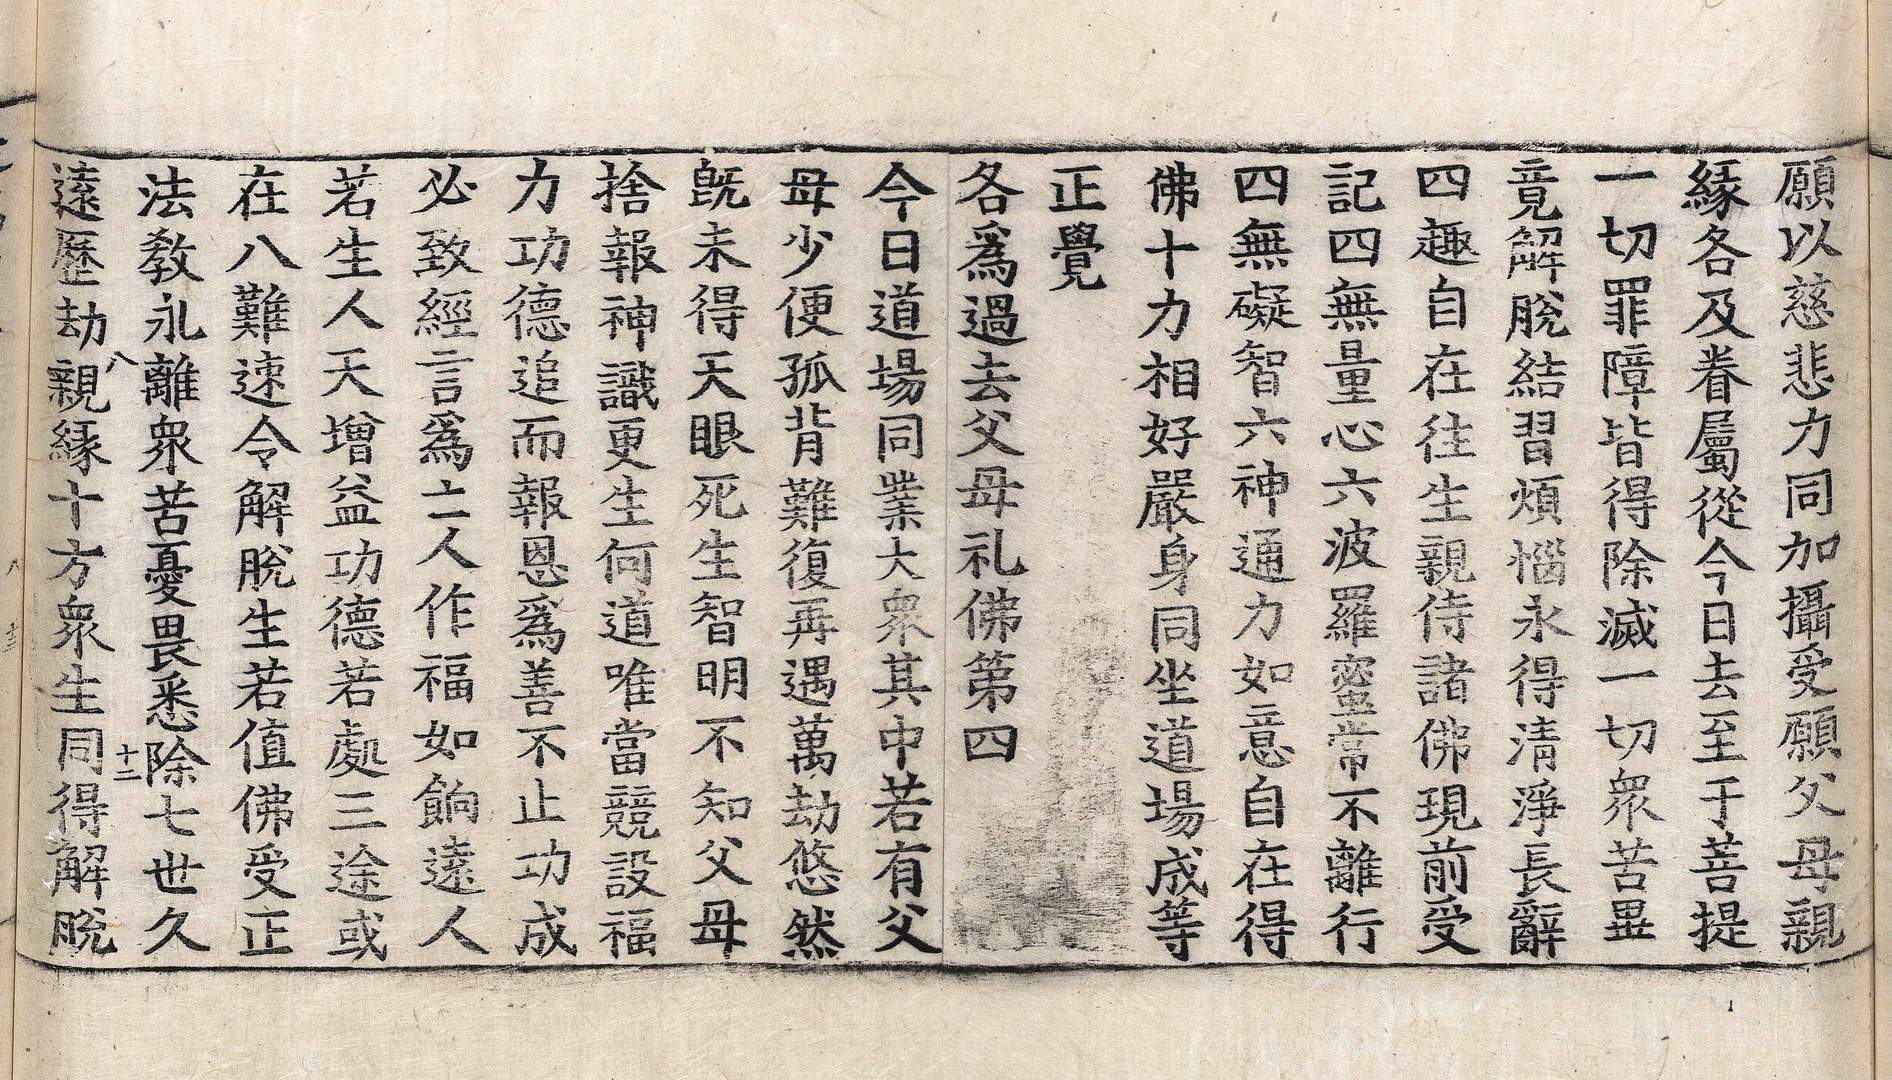 願以慈悲力同加攝受願父母親
緣各及眷屬從今日去至于菩提
一切罪障皆得除滅一切衆苦畢
竟解脫結習煩惱永得清淨長辭
四趣自在往生親侍諸佛現前受
記四無量心六波羅蜜常不離行
四無礙智六神通力如意自在得
佛十力相好嚴身同坐道場成等
正覺
各爲過去父母礼佛第四
今日道場同業大衆其中若有父
母少便孤背難復再遇萬劫悠然
旣未得天眼死生智明不知父母
捨報神識更生何道唯當競設福
力功德追而報恩爲善不止功成
必致經言爲亡人作福如餉遠人
若生人天增益功德若處三途或
在八難速令解脫生若值佛受正
法教永離衆苦憂畏悉除七世久
八 十二
遠歷劫親緣十方衆生同得解脫